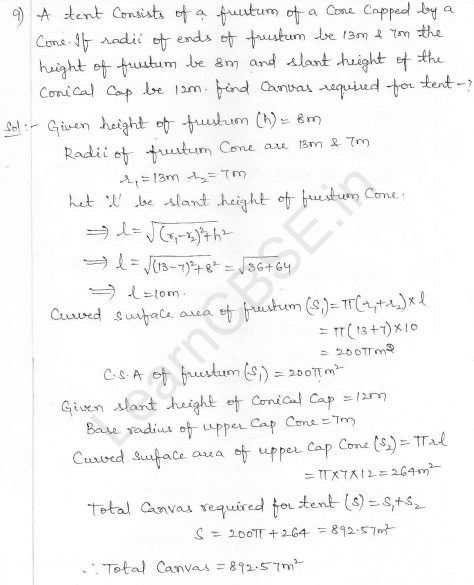 9) A tent Consists of a frustum of a Cone Capped by a
Cone. If radii of ends of frustum be 13m & 7m the
height of frustum be 8m and slant height of the
Conical Cap be 12m. find Canvas required for tent-?
Sol:- Given height of frustum (h) = 8m
Radii of frustum Cone are 13m & 7m
r₁=13m r₂=7m
Let 'l' be slant height of frustum Cone.
⇒ l = √(r₁-r₂)²+h²
⇒ l = √(13-7)²+8² = √36+64
⇒ l = 10m.
Curved surface area of frustum (S₁) = π(r₁+r₂)×l
= π(13+7)×10
= 200πm²
C.S.A of frustum (S₁) = 200πm²
Given slant height of Conical Cap = 12m
Base radius of upper Cap Cone = 7m
Curved surface area of upper Cap Cone (S₂) = πrl
= π×7×12 = 264m²
Total Canvas required for tent (S) = S₁+S₂
S = 200π + 264 = 892.57m²
∴ Total Canvas = 892.57m²
LearnCBSE.in